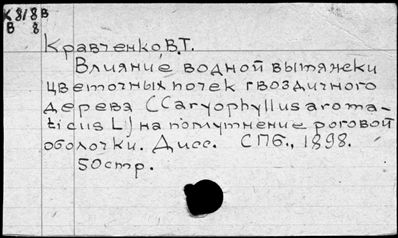 К 818 В
В 8
Кравченко В.Т.
Влияние водной вытяжки
цветочных почек гвоздичного
дерева (Caryophyllus aroma-
ticus L) на помутнение роговой
оболочки. Дисс. СПб., 1898.
50 стр.